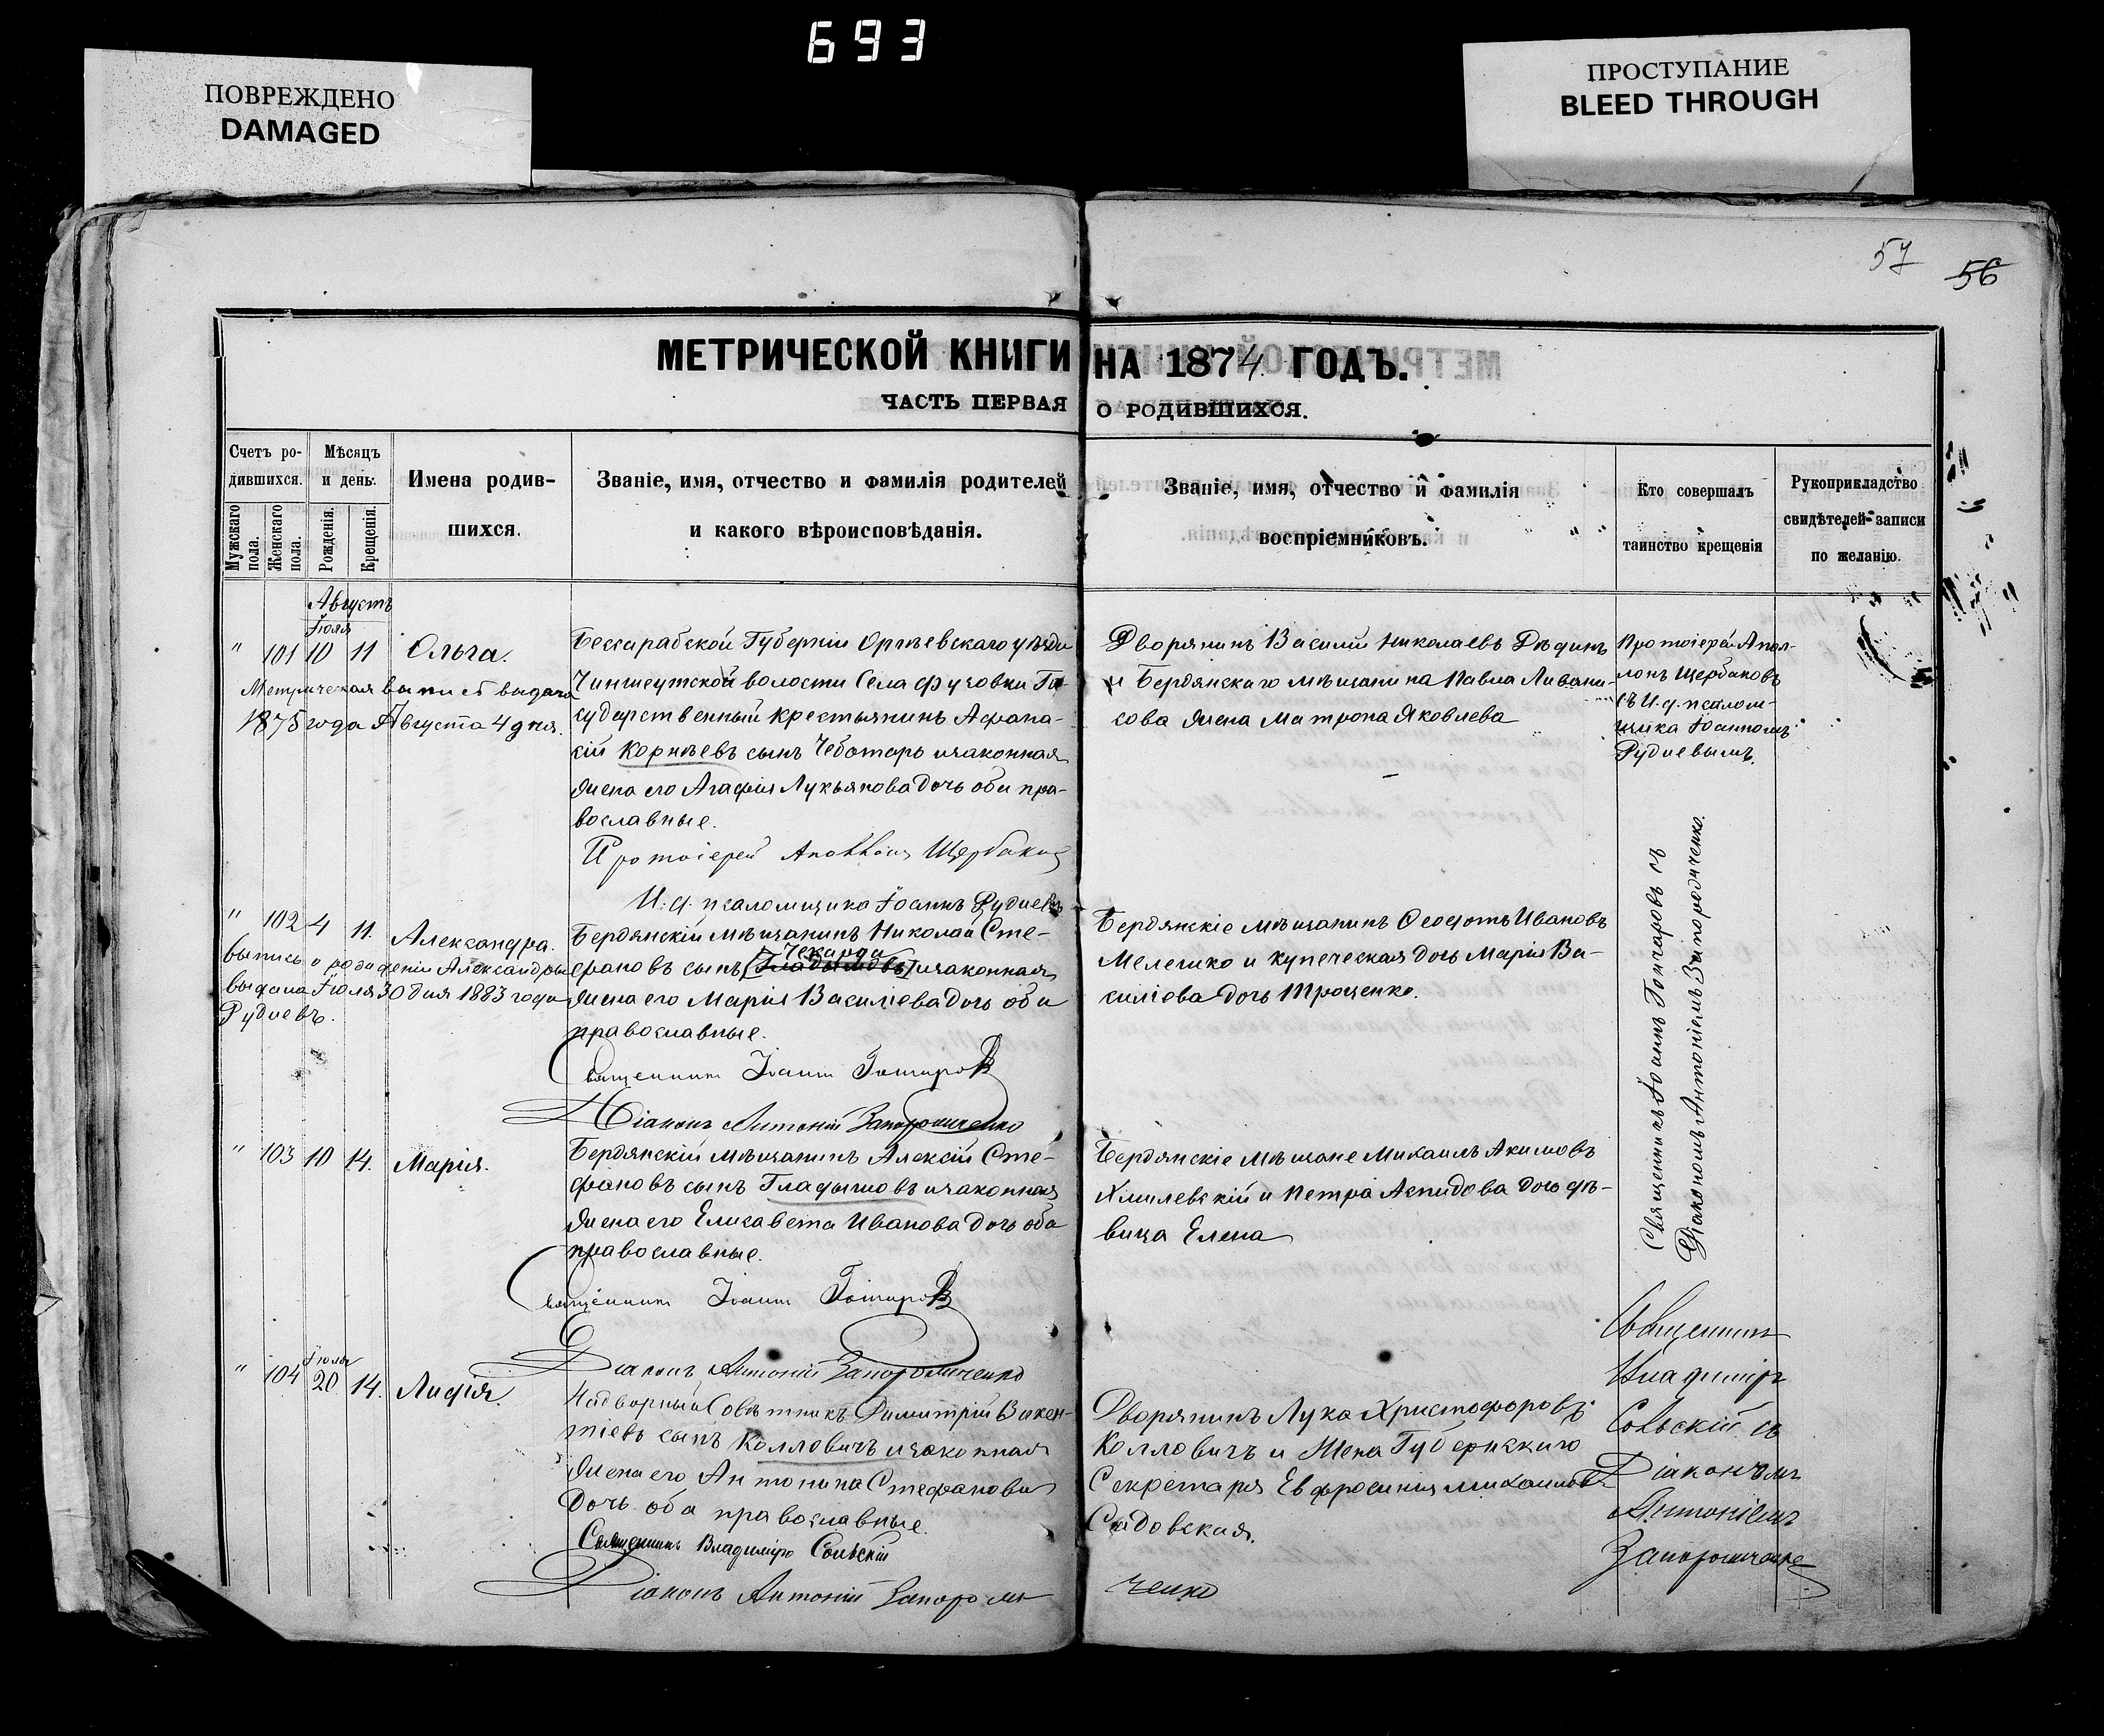 693
ПОВРЕЖДЕНО
DAMAGED
ПРОСТУПАНИЕ
BLEED THROUGH
57 56
МЕТРИЧЕСКОЙ КНИГИ НА 1874 ГОДЪ.
ЧАСТЬ ПЕРВАЯ О РОДИВШИХСЯ.
Счетъ ро-
дившихся.
Мужскаго пола.
Женскаго пола.
Мѣсяцъ
и день.
Рожденія.
Крещенія.
Имена родив-
шихся.
Званіе, имя, отчество и фамилія родителей
и какого вѣроисповѣданія.
Званіе, имя, отчество и фамилія
воспріемниковъ.
Кто совершалъ
таинство крещенія
Рукоприкладство
свидѣтелей записи
по желанію.
Августъ
Іюля
" 101 10 11 Ольга.
Метрическая выпись выдана
1875 года Августа 4 дня.
Бессарабской Губерніи Оргѣевскаго уѣзда
Чиншеутской волости Села Фузовки Го-
сударственный крестьянинъ Афана-
сій Корнѣевъ сынъ Чеботарь изаконная
жена его Агафія Лукьянова дочь оба пра-
вославные.
Протоіерей Аполлонъ Щербаковъ
И. д. псаломщика Іоаннъ Рудиевъ
Дворянинъ Василій Николаевъ Дѣдинъ
и Бердянскаго мѣщанина Павла Ливани-
сова жена Матрона Яковлева
Протоіерей Апол-
лонъ Щербаковъ
съ И. д. псалом-
щика Іоанномъ
Рудиевымъ.
" 102 4 11. Александра.
Выпись о рожденіи Александры
выдана Іюля 30 дня 1883 года
Рудиевъ.
Бердянскій мѣщанинъ Николай Сте-
Чекарда
фановъ сынъ [Гладышовъ] изаконная
жена его Марія Василіева дочь оба
православные.
Священникъ Іоаннъ Гончаровъ
Діаконъ Антоній Запорожченко
Бердянскіе мѣщанинъ Феодотъ Ивановъ
Мелешко и купеческая дочь Марія Ва-
силіева дочь Троценко.
Священникъ Іоаннъ Гончаровъ съ
Діакономъ Антоніемъ Запорожченко.
" 103 10 14. Марія.
Бердянскій мѣщанинъ Алексій Сте-
фановъ сынъ Гладышовъ изаконная
жена его Елисавета Иванова дочь оба
православные.
Священникъ Іоаннъ Гончаровъ
Діаконъ Антоній Запорожченко
Бердянскіе мѣщане Михаилъ Акимовъ
Хмилевскій и Петра Аспидова дочь дѣ-
вица Елена
Іюля
" 104 20 14. Лидія.
Надворный Совѣтникъ Димитрій Викен-
тіевъ сынъ Колловичъ изаконная
жена его Антонина Стефанова
дочь оба православные.
Священникъ Владиміръ Сольскій
Діаконъ Антоній Запорож
ченко
Дворянинъ Лука Христофоровъ
Колловичъ и Жена Губернскаго
Секретаря Евфросинія Михаилова
Садовская.
Священникъ
Владиміръ
Сольскій съ
Діакономъ
Антоніемъ
Запорожченко